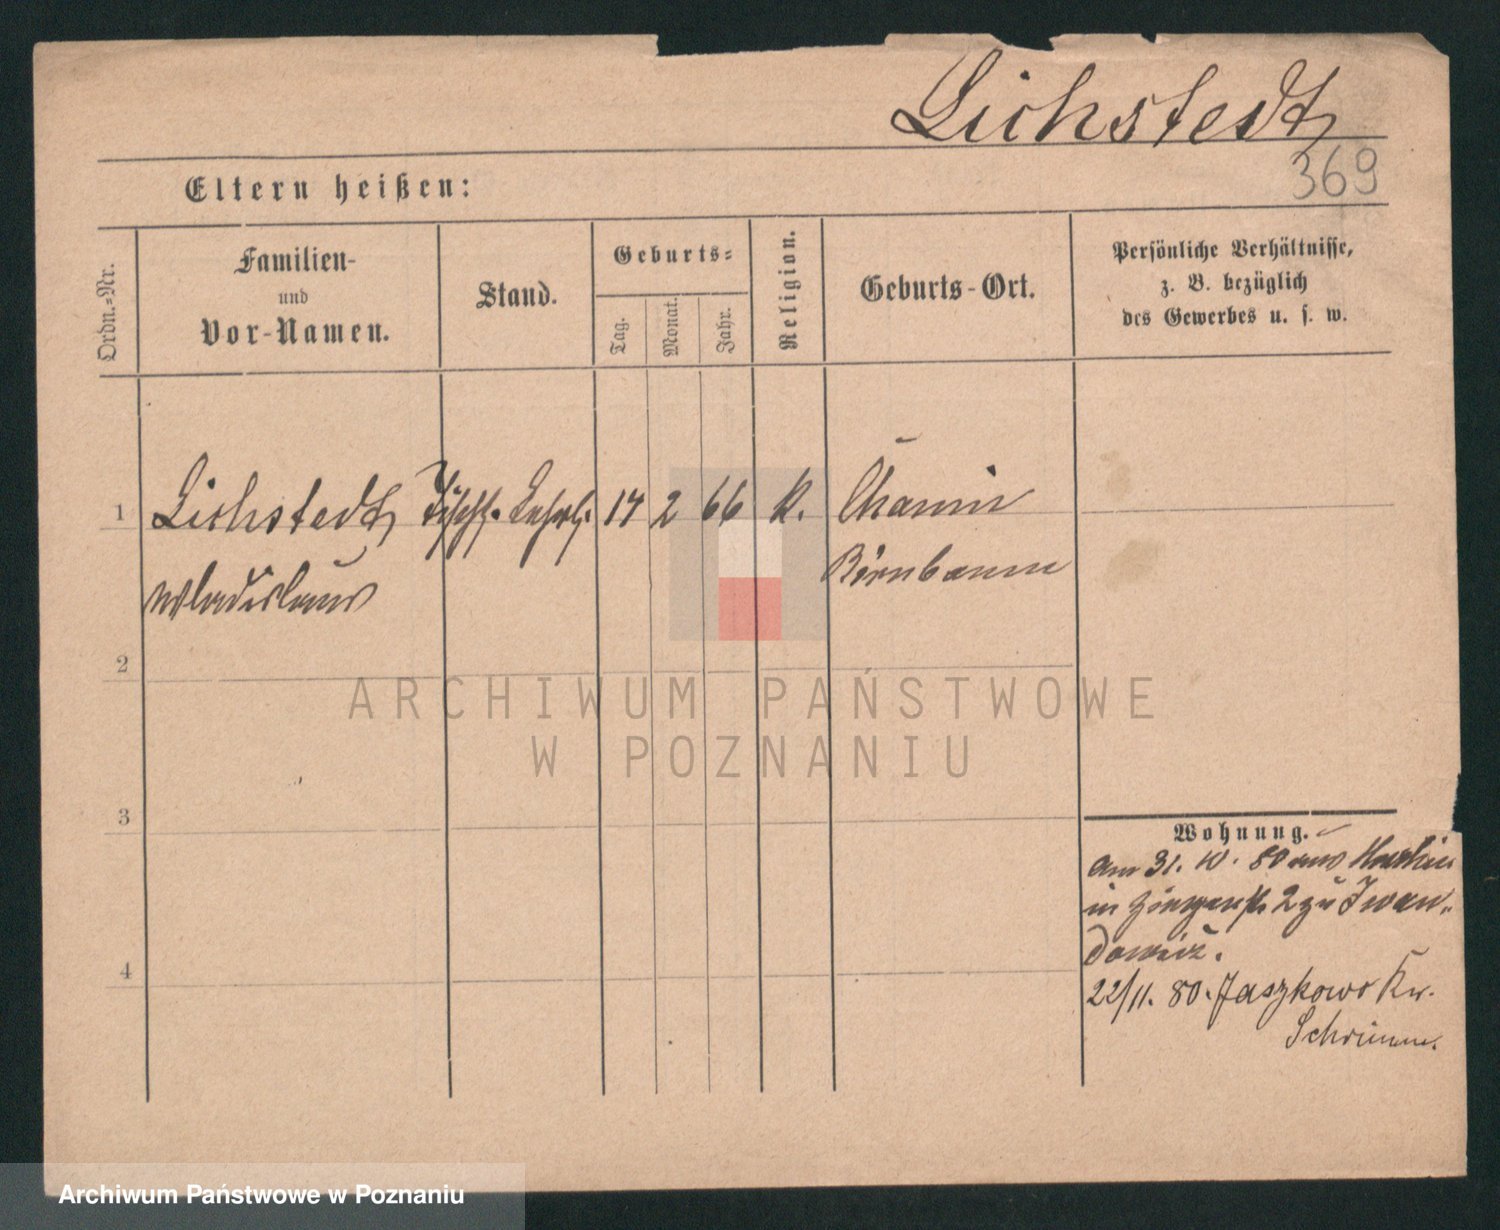 Lichstedt
369
Eltern heißen:
Ordn.=Nr.
Familien-
und
Vor-Namen.
Stand.
Geburts=
Tag.
Monat.
Jahr.
Religion.
Geburts-Ort.
Persönliche Verhältnisse,
z. B. bezüglich
des Gewerbes u. s. w.
1 Lichstedt Tischl. Lehrl. 17 2 66 k.
Birnbaum
Wladislaus
2
ARCHIWUM PAŃSTWOWE
W POZNANIU
3
4
Wohnung.
Am 31. 10. 80 aus
in 2 zu Iwan-
dowicz.
22/11. 80. Jaszkowo Kr.
Schrimm.
Archiwum Państwowe w Poznaniu